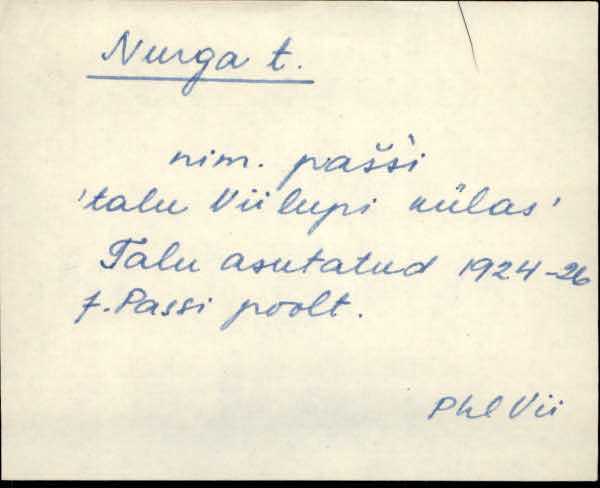 Nurga t.
nim. pašši
'talu Viilupi külas'
Talu asutatud 1924-26
J. Passi poolt.
Phl Vii